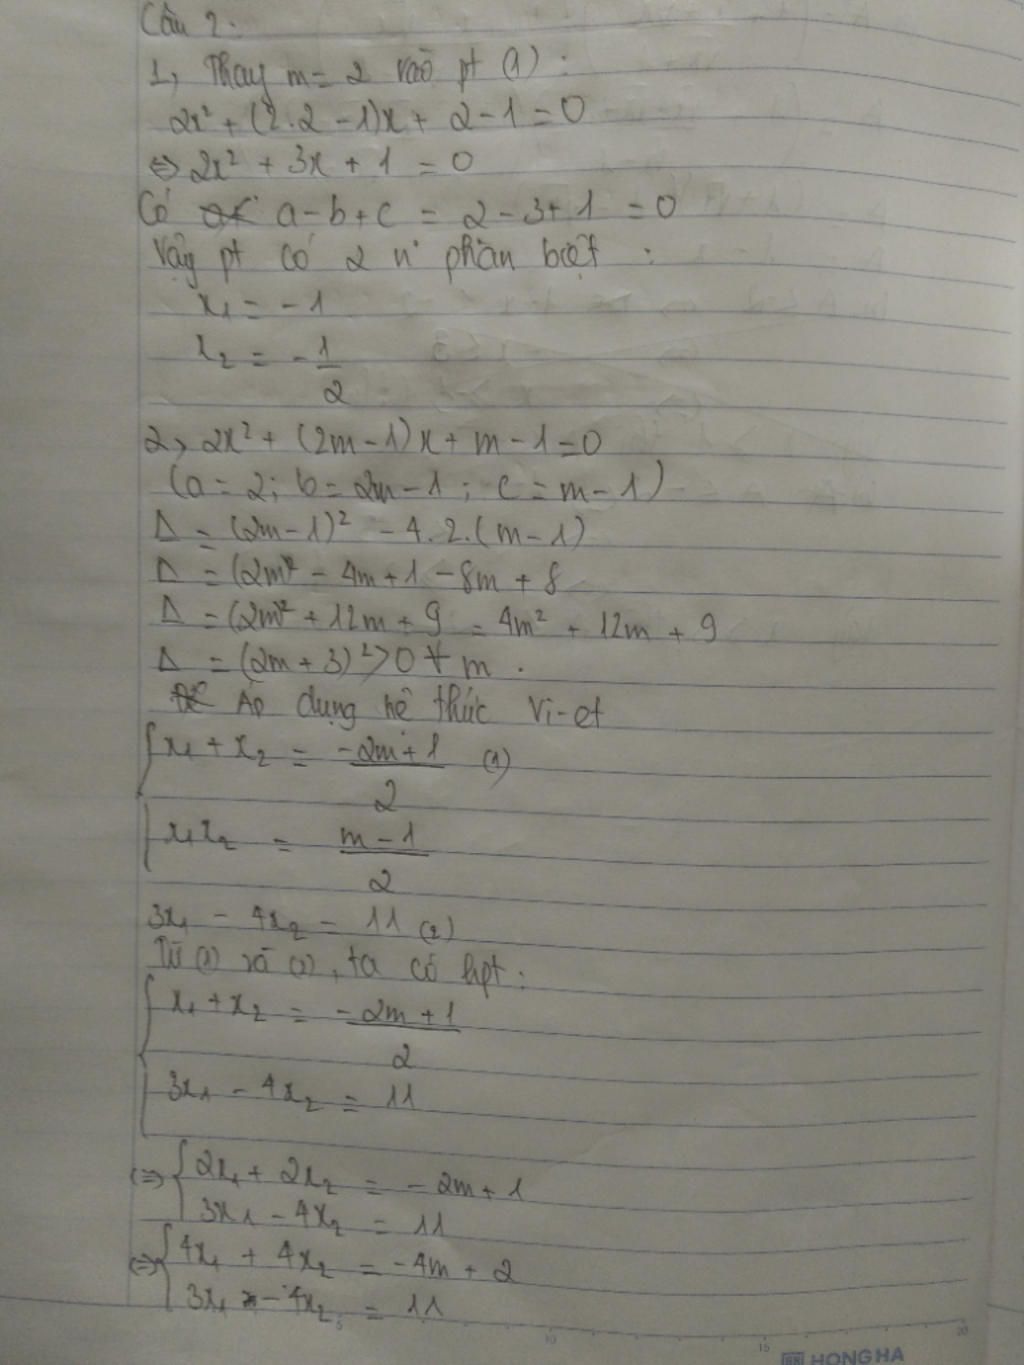 Câu 2:
1, Thay m = 2 vào pt (1):
2x² + (2.2 - 1)x + 2 - 1 = 0
⇔ 2x² + 3x + 1 = 0
Có a - b + c = 2 - 3 + 1 = 0
Vậy pt có 2 n⁰ phân biệt:
x₁ = -1
x₂ = -1/2
2, 2x² + (2m - 1)x + m - 1 = 0
(a = 2; b = 2m - 1; c = m - 1)
Δ = (2m - 1)² - 4.2.(m - 1)
Δ = (2m)² - 4m + 1 - 8m + 8
Δ = (2m)² + 12m + 9 = 4m² + 12m + 9
Δ = (2m + 3)² > 0 ∀ m.
Áp dụng hệ thức Vi-et
{ x₁ + x₂ = (-2m + 1)/2 (1)
{ x₁x₂ = (m - 1)/2
3x₁ - 4x₂ = 11 (2)
Từ (1) và (2), ta có hpt:
{ x₁ + x₂ = (-2m + 1)/2
{ 3x₁ - 4x₂ = 11
⇔ { 2x₁ + 2x₂ = -2m + 1
{ 3x₁ - 4x₂ = 11
⇔ { 4x₁ + 4x₂ = -4m + 2
{ 3x₁ - 4x₂ = 11
5 10 15 20
HONG HA